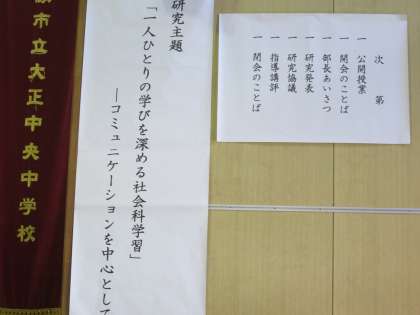 次 第
一 公開授業
一 開会のことば
一 部長あいさつ
一 研究発表
一 研究協議
一 指導講評
一 閉会のことば
研究主題
「一人ひとりの学びを深める社会科学習」
―コミュニケーションを中心として
市立大正中央中学校